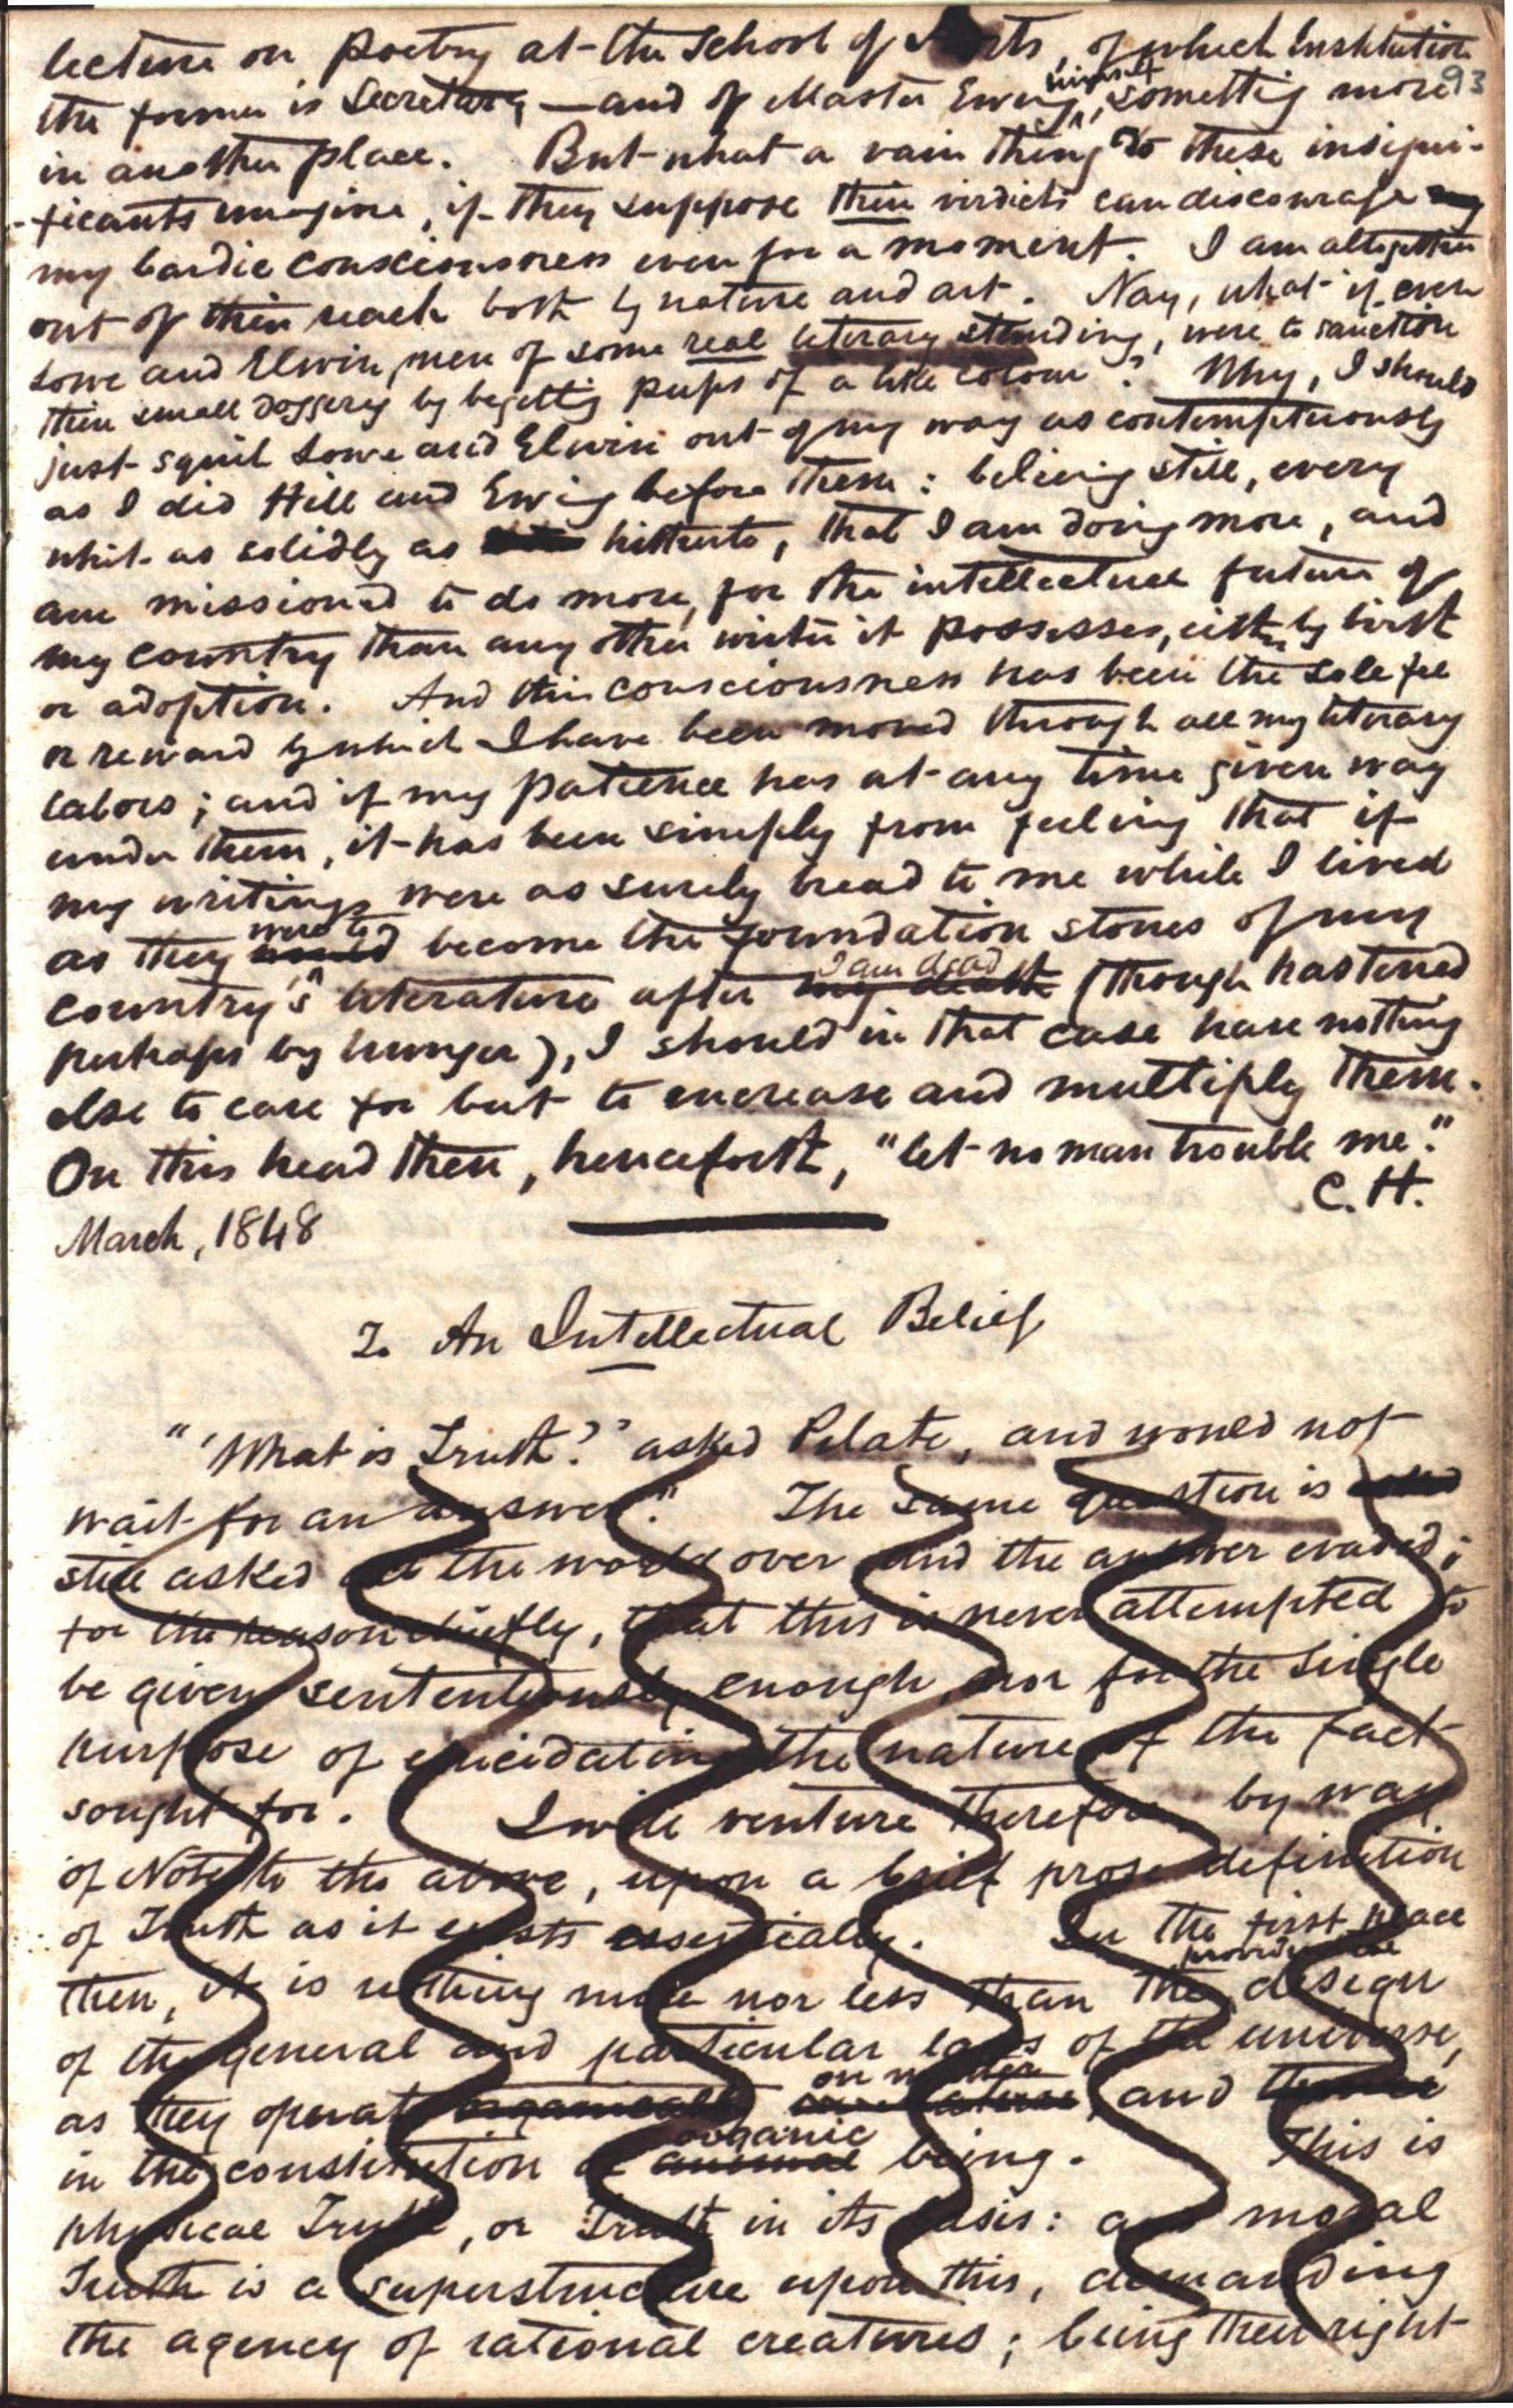 lecture on Poetry at the School of Arts, of which Institution
93
the former is Secretary,—and of Master Ewing himself, something more
in another place. But what a vain thing do these insigni-
-ficants imagine, if they suppose their verdicts can discourage my
my bardic consciousness even for a moment. I am altogether
out of their reach both by nature and art. Nay, what if even
Lowe and Elwin, men of some real literary standing, were to sanction
their small doggery by begetting pups of a like colour? Why, I should
just squil Lowe and Elwin out of my way as contemptuously
as I did Hill and Ewing before them: believing still, every
whit as solidly as hitherto, that I am doing more, and
am missioned to do more, for the intellectual future of
my country than any other writer it possesses, either by birth
or adoption. And this consciousness has been the sole fee
or reward by which I have been moved through all my literary
labors; and if my patience has at any time given way
under them, it has been simply from feeling that if
my writings were as surely bread to me while I lived
as they were to would become the foundation stones of my
country's literature after I am dead my death (though hastened
perhaps by hunger), I should in that case have nothing
else to care for but to increase and multiply them.
On this head then, henceforth, "let no man trouble me."
C. H.
March, 1848
2. An Intellectual Belief
"'What is Truth?' asked Pilate, and would not
wait for an answer." The same question is
still asked all the world over and the answer evaded;
for the reason chiefly, that this is never attempted to
be given sententiously enough, nor for the single
purpose of elucidating the nature of the fact
sought for. I will venture therefore, by way
of Note to the above, upon a brief prose definition
of Truth as it exists essentially. In the first place
then, it is nothing more nor less than the providential design
of the general and particular laws of the universe,
as they operate organically on matter, and
in the constitution of organic animal being. This is
physical Truth, or Truth in its basis: and moral
Truth is a superstructure upon this, demanding
the agency of rational creatures; being their right